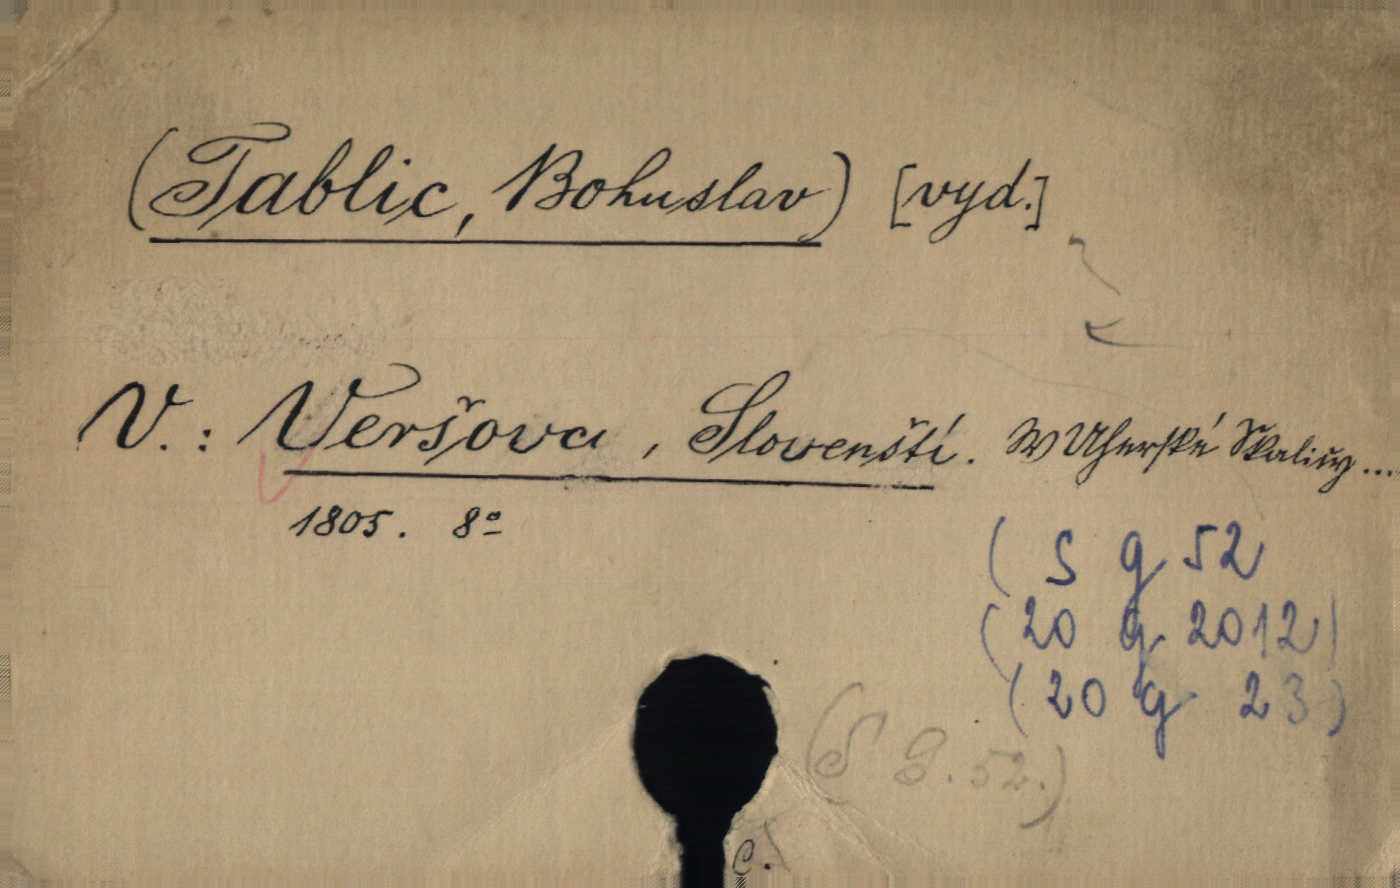 (Tablic, Bohuslav) [vyd.]
V.: Veršova, Slovenští. W Uherské Skalicy...
1805. 8º
( S g 52
(20 g 2012)
(20 g 23)
(S g. 52.)
C.